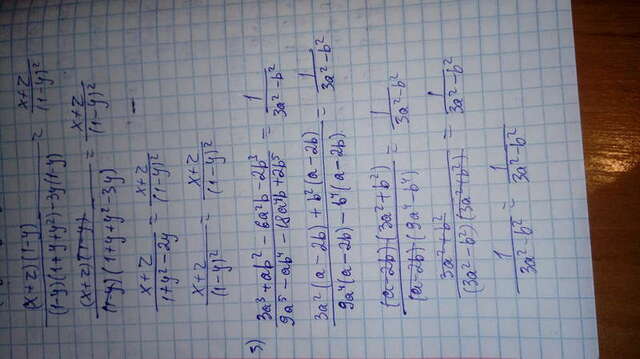 (x+z)(1-y) / (1-y)(1+y+y²)-3y(1-y) = x+z / (1-y)²
(x+z)(1-y) / (1-y)(1+y+y²-3y) = x+z / (1-y)²
x+z / 1+y²-2y = x+z / (1-y)²
x+z / (1-y)² = x+z / (1-y)²
3a³+ab²-6a²b-2b³ / 9a⁵-ab⁴-18a⁴b+2b⁵ = 1 / 3a²-b²
3a²(a-2b)+b²(a-2b) / 9a⁴(a-2b)-b⁴(a-2b) = 1 / 3a²-b²
(a-2b)(3a²+b²) / (a-2b)(9a⁴-b⁴) = 1 / 3a²-b²
3a²+b² / (3a²-b²)(3a²+b²) = 1 / 3a²-b²
1 / 3a²-b² = 1 / 3a²-b²